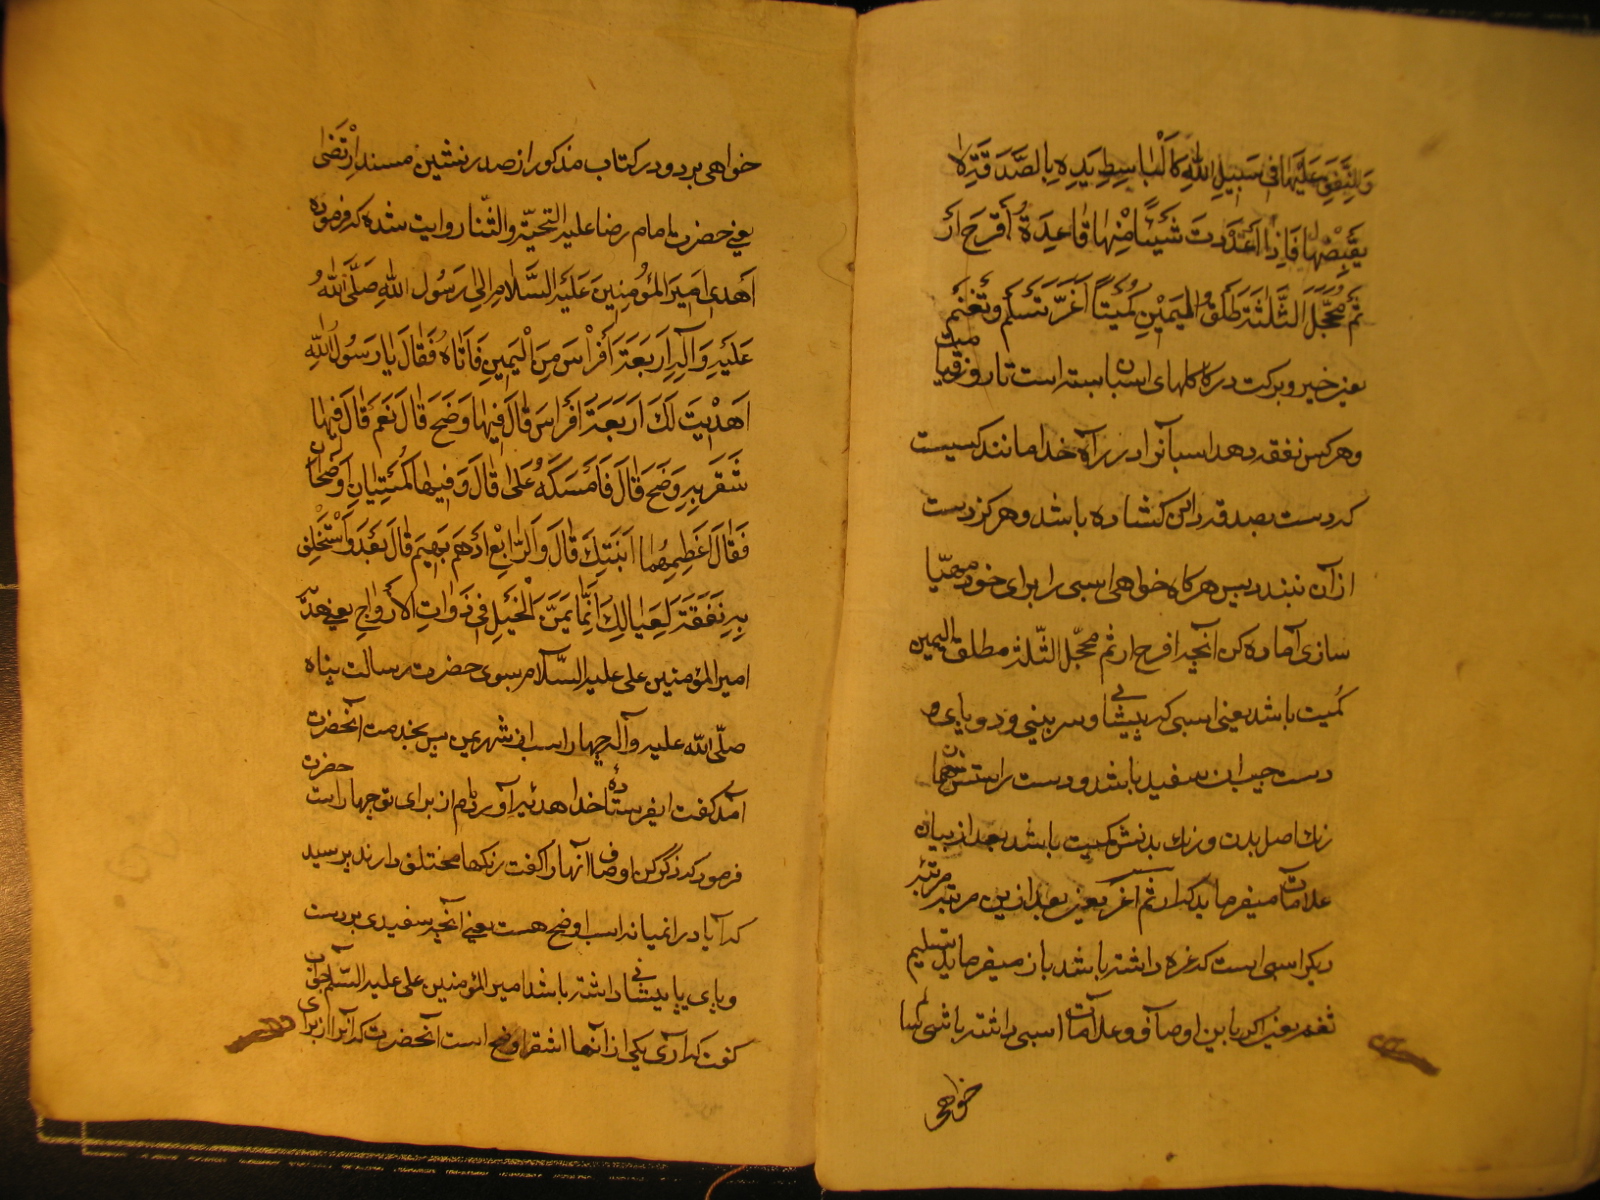 وَالْمُنْفِقُ عَلَيْهَا فِي سَبِيلِ اللّهِ كَالْبَاسِطِ يَدِهِ بِالصَّدَقَةِ لَا
يَقْبِضُهَا فَإِذَا اَعْدَدْتَ شَيْئًا مِنْهَا فَاعِدَهُ اَقْرَحَ اَرْ
ثَمَ مُحَجَّلَ الثَّلَثَةِ طَلْقُ الْيَمِيْنِ كُمَيْتًا اَغَرَّ تَسْلَمْ وَتَغْنَمْ
یعنی خیر و برکت در کاکلهای اسبان بسته است تا روز قیامت
و هر کس نفقه دهد اسبانرا در راه خدا مانند کسیست
که دست بصدقه دادن کشاده باشد و هرکز دست
از آن نبندد پس هرکاه خواهی اسبی را برای خود مهیّا
سازی آماده کن آنچه اقرح ارثم محجّل الثّلثه مطلق الیمین
کُمیت باشد یعنی اسبی که پیشانی و سر بینی و دو پای و
دست چپ ان سفید باشد و دست راستش همان
رنك اصل بدن و رنك بدنش کمیت باشد بعد از بیان
علامات میفرماید که ارثم اغر یعنی بعد ازین مرتبه مرتبه
دیکر اسبی است که غره داشته باشد باز میفرماید تسلیم
تغنم یعنی اکر باین اوصاف و علامات اسبی داشته باشی سالم
خواهی
خواهی برد و در کتاب مذکور از صدر نشین مسند اِرْتَضَی
یعنی حضرت امام رضا علیه التحیّة والثّنا روایت شده که فرموده
اَهْدی اَمِیرَ الْمُؤمِنِینَ عَلَیْهِ السَّلَامِ اِلی رَسُولِ اللّهِ صَلَّی اللّهُ
عَلَیْهِ وَآلِهِ اَرْبَعَةَ اَفْرَاسٍ مِنَ الْیَمِینِ فَاَتَاهُ فَقَالَ یَا رَسُولُ اللّهِ
اَهْدَیْتُ لَكَ اَرْبَعَةَ اَفْرَاسَ قَالَ فِیهَا وَضَحَ قَالَ نَعَمْ قَالَ فِیهَا
شَقَرَ بِهِ وَضَحَ قَالَ فَاَمْسَکَهُ عَلَی قَالَ وَفِیهَا کُمَیْتَیَانِ وَضَحَانِ
فَقَالَ اَعْطِهِمَا اَبْنَتِكَ قَالَ وَالرَّابِعْ اَدْهَمَ بَهِیمَ قَالَ بَعْدَ وَاسْتَخْلِفْ
بِهِ نَفَقَةَ لَعِیَالِكْ اِنَّمَا یَمَنَ الْخَیْلِ فِی ذَوَاتِ الْاَرْوَاحِ یعنی هدیّه
امیر المؤمنین علی علیه السّلام بسوی حضرت رسالت پناه
صلّی اللّه علیه وآله چهار اسب از شهر یمن پس بخدمت آنحضرت
آمد کفت ایفرستاده خدا هدیه آورده‌ام از برای تو چهار است حضرت
فرمود که ذکر کن اوصاف آنها را کفت رنکها مختلف دارند پرسید
که آیا در انمیانه اسب اوضح هست یعنی آنچه سفیدی بر دست
و پای یا پیشانی داشته باشد امیر المؤمنین علی علیه السّلام جواب
کفت که آری یکی از آنها اشقر اوضح است آنحضرت که آنرا از برای